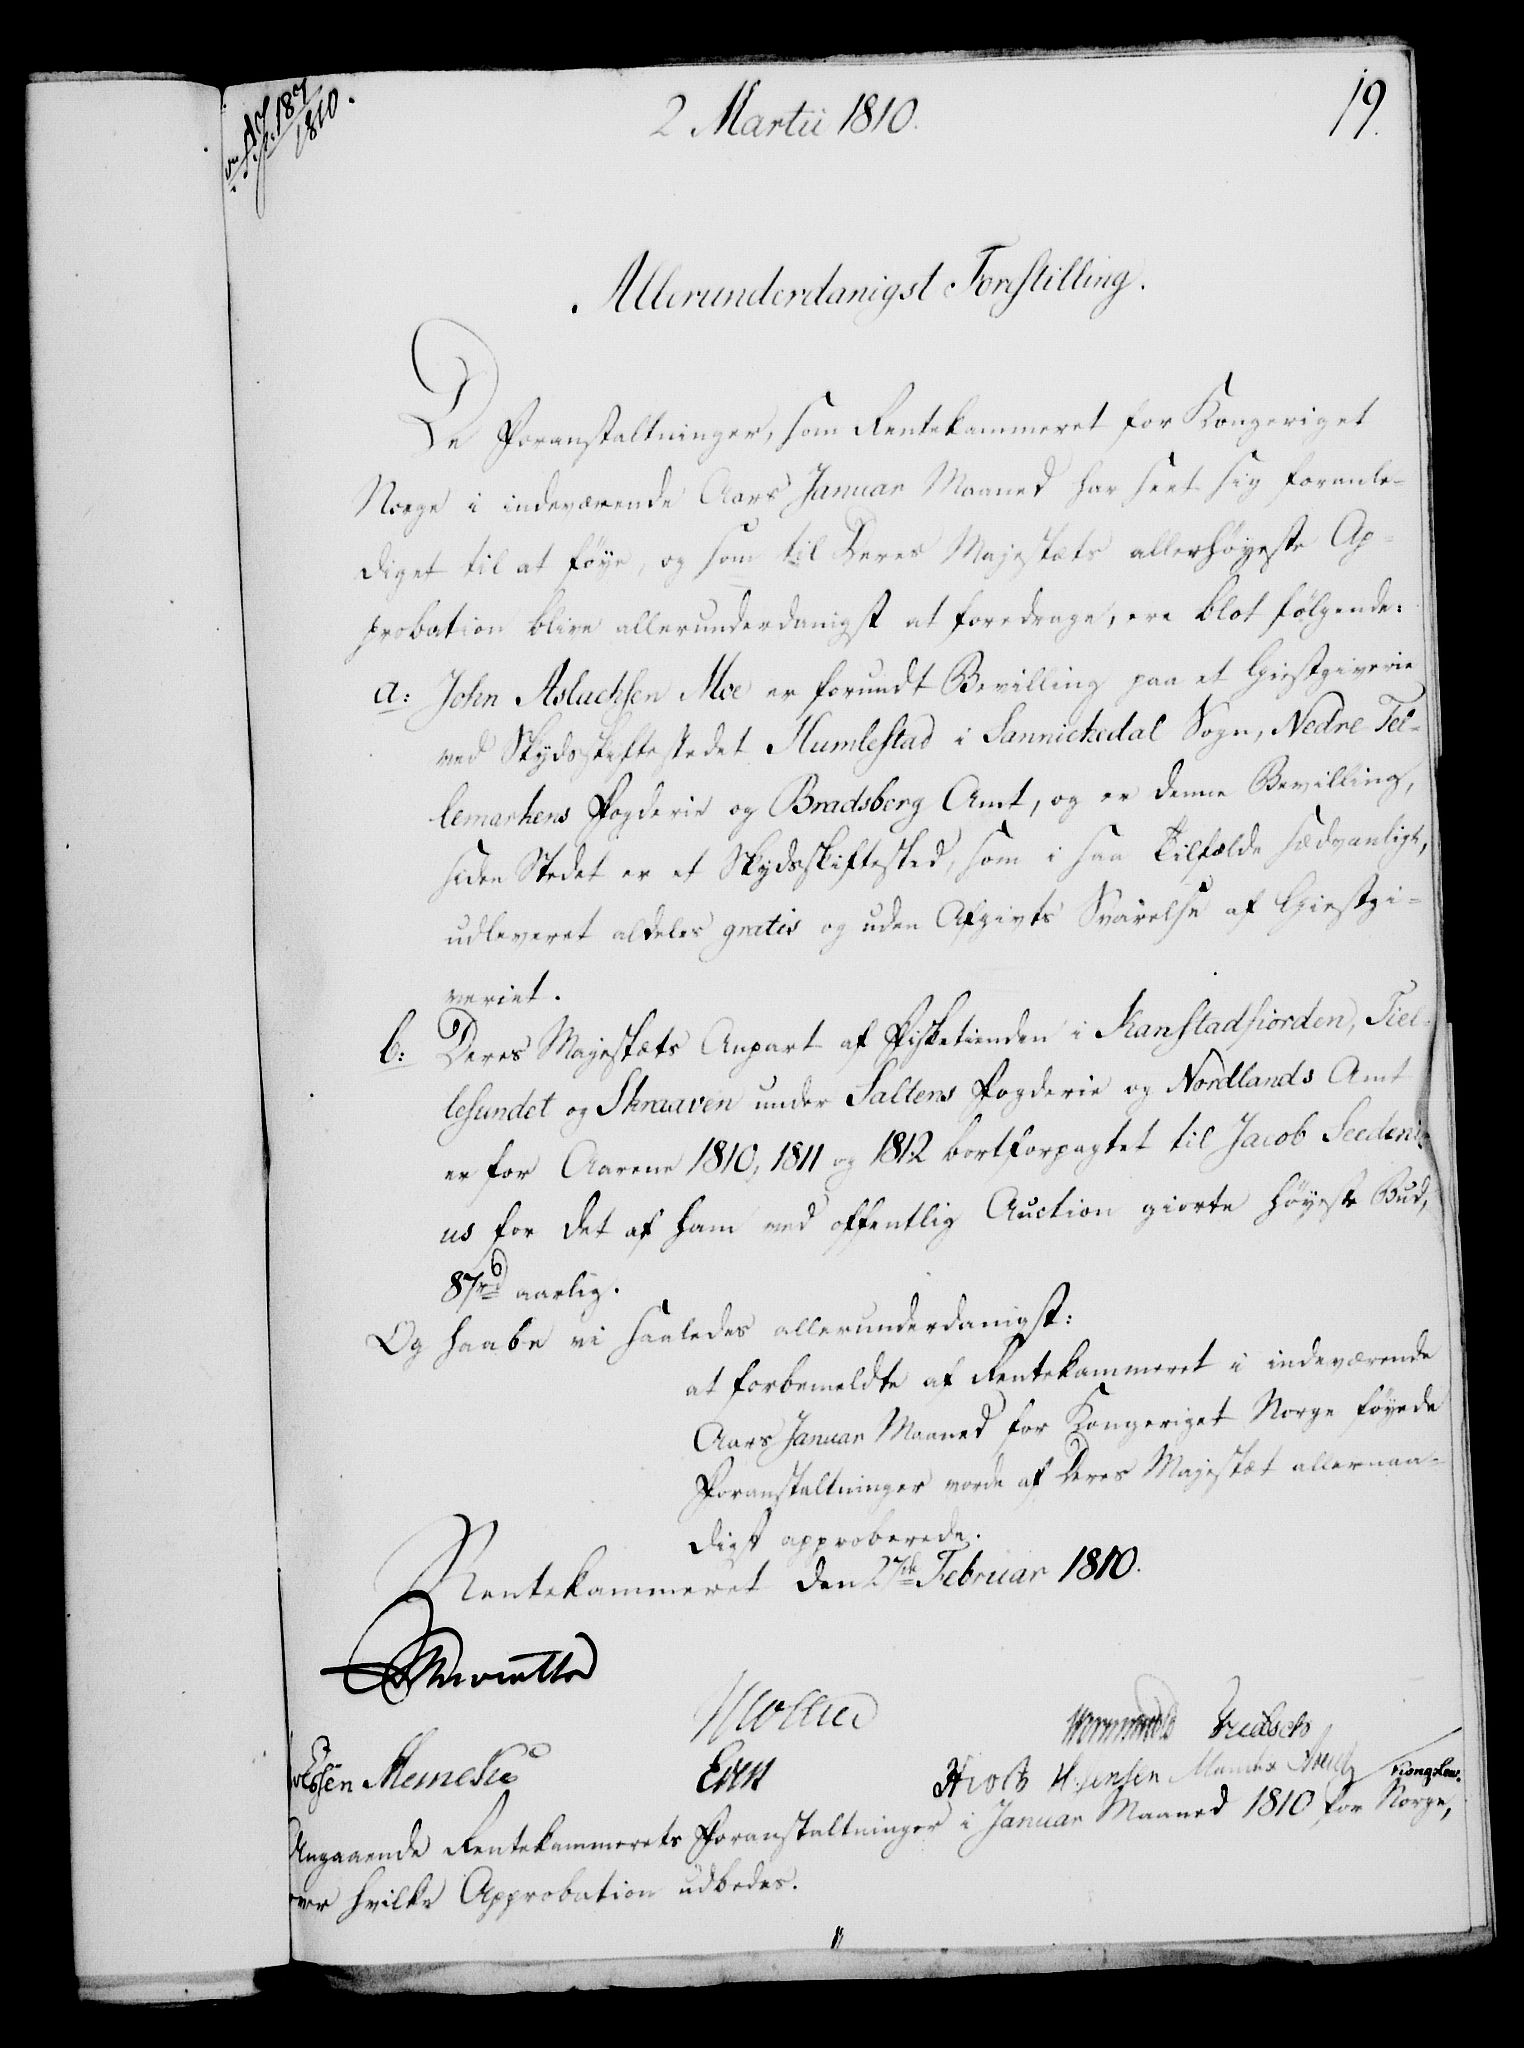 2 Martii 1810.
19.
1810.
Allerunderdanigst Forestilling.
De Foranstaltninger, som Rentekammeret for Kongeriget
Norge i indeværende Aars Januar Maaned har seet sig foranle-
diget til at føye, og som til Deres Majestæts allerhøyeste Ap-
probation blive allerunderdanigst at foredrage, ere blot følgende:
a: John Aslachsen Moe er forundt Bevilling paa et Giestgiverie
ved Skydsskiftestedet Humlestad i Sannickedal Sogn, Nedre Tel-
lemarkens Fogderie og Bradsberg Amt, og er denne Bevilling,
siden Stedet er et Skydsskiftested, som i saa Tilfælde sædvanligt,
udleveret aldeles gratis og uden Afgivts Svarelse af Giestgi-
veriet.
b: Deres Majestæts Anpart af Fisketienden i Kanstadfiorden, Tiel-
lesundet og Skraaven under Saltens Fogderie og Nordlands Amt
er for Aarene 1810, 1811 og 1812 bortforpagtet til Jacob Seeden-
us for det af ham ved offentlig Auction giorte høyeste Bud,
87 rd aarlig.
Og haabe vi saaledes allerunderdanigst:
at forbemeldte af Rentekammeret i indeværende
Aars Januar Maaned for Kongeriget Norge føyede
Foranstaltninger vorde af Deres Majestæt allernaa-
digst approberede.
Rentekammeret den 27de Februar 1810.
Møller
Wormskiold
Meincke
Even
Holt H. Jensen
Angaaende Rentekammerets Foranstaltninger i Januar Maaned 1810 for Norge,
over hvilke Approbation udbedes.